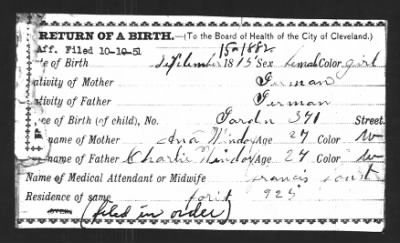 RETURN OF A BIRTH.—(To the Board of Health of the City of Cleveland.)
Aff. Filed 10-10-51
15-1882
e of Birth September 1815 Sex female Color girl
ativity of Mother German
ativity of Father German
ce of Birth (of child), No. 371 Street.
name of Mother Ana Windox Age 27 Color W
name of Father Charlie Windox Age 24 Color W
Name of Medical Attendant or Midwife
Residence of same 925
(filed in order)